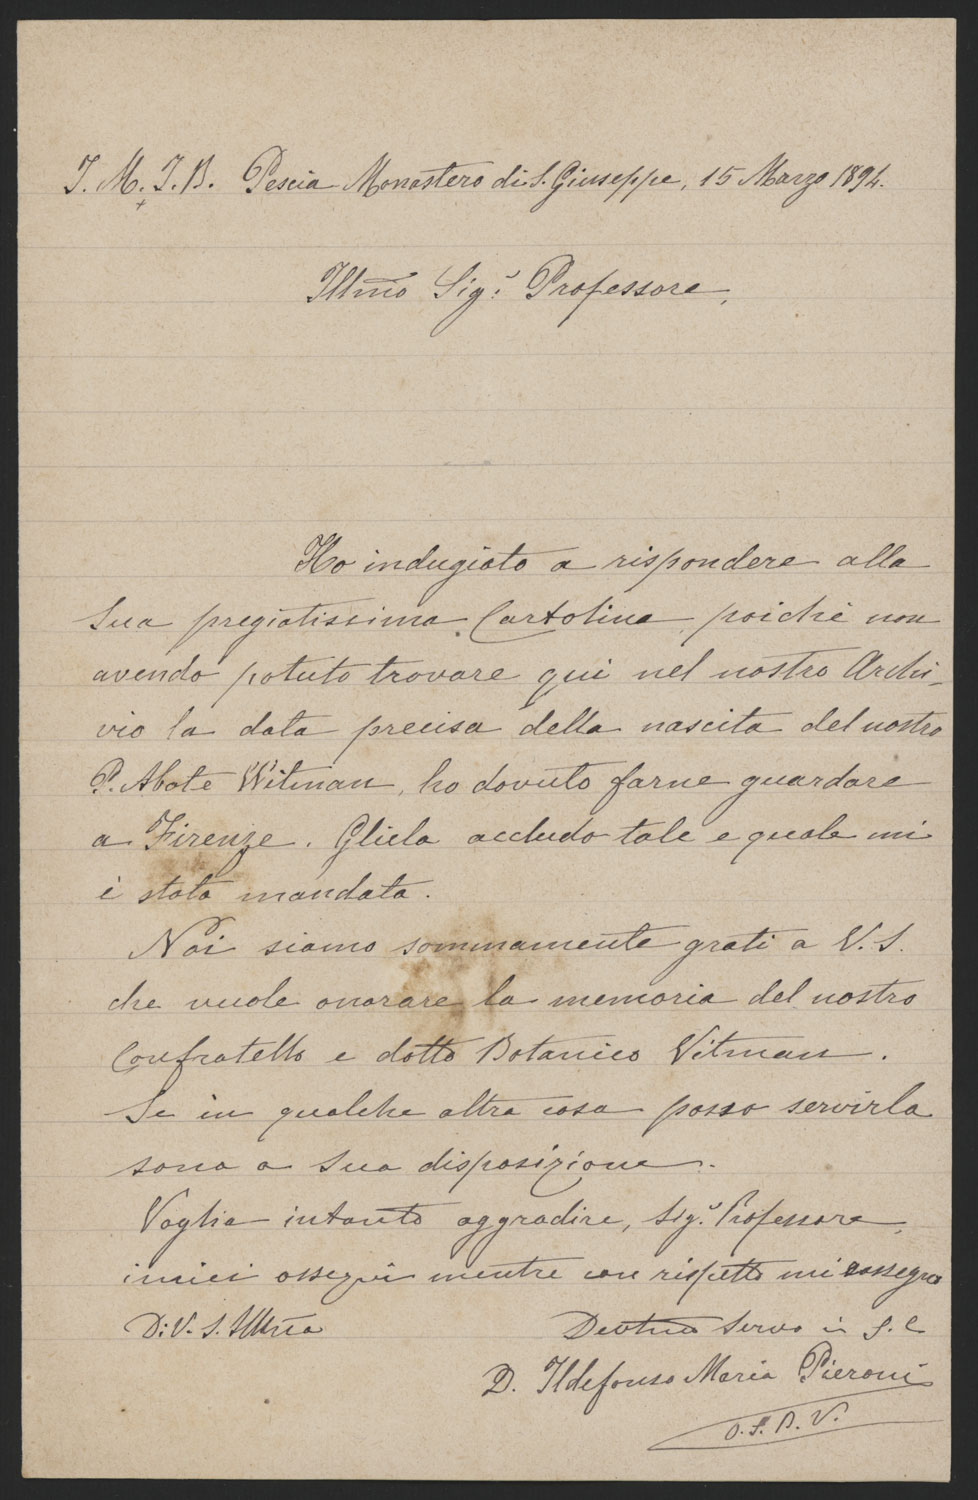 J. M. J. B. Pescia Monastero di S. Giuseppe, 15 Marzo 1894.
Illmo Sigr. Professore,
Ho indugiato a rispondere alla
Sua pregiatissima Cartolina, poichè non
avendo potuto trovare qui nel nostro Archi-
vio la data precisa della nascita del nostro
P. Abate Witman, ho dovuto farne guardare
a Firenze. Gliela accludo tale e quale mi
è stata mandata.
Noi siamo sommamente grati a V. S.
che vuole onorare la memoria del nostro
Confratello e dotto Botanico Vitman.
Se in qualche altra cosa posso servirla
sono a Sua disposizione.
Voglia intanto aggradire, Sigr. Professore,
i miei ossequi mentre con rispetto mi rassegno
Di V. S. Illma
Devtmo Servo in G. C
D. Ildefonso Maria Pieroni
O. S. B. V.